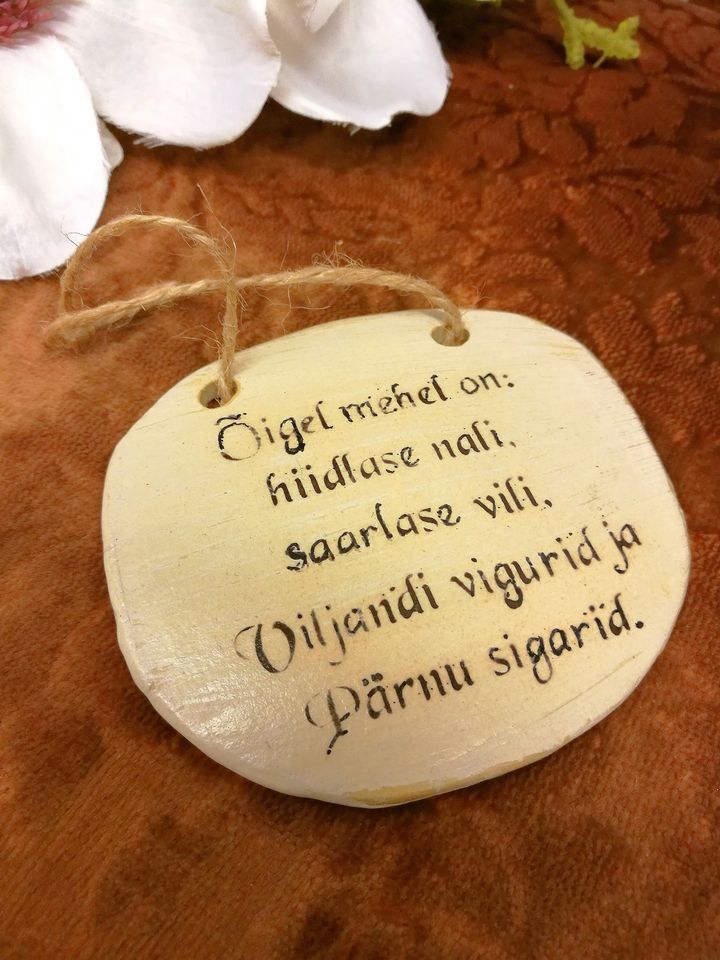 Õigel mehel on:
hiidlase nali,
saarlase vili,
Viljandi vigurid ja
Pärnu sigarid.